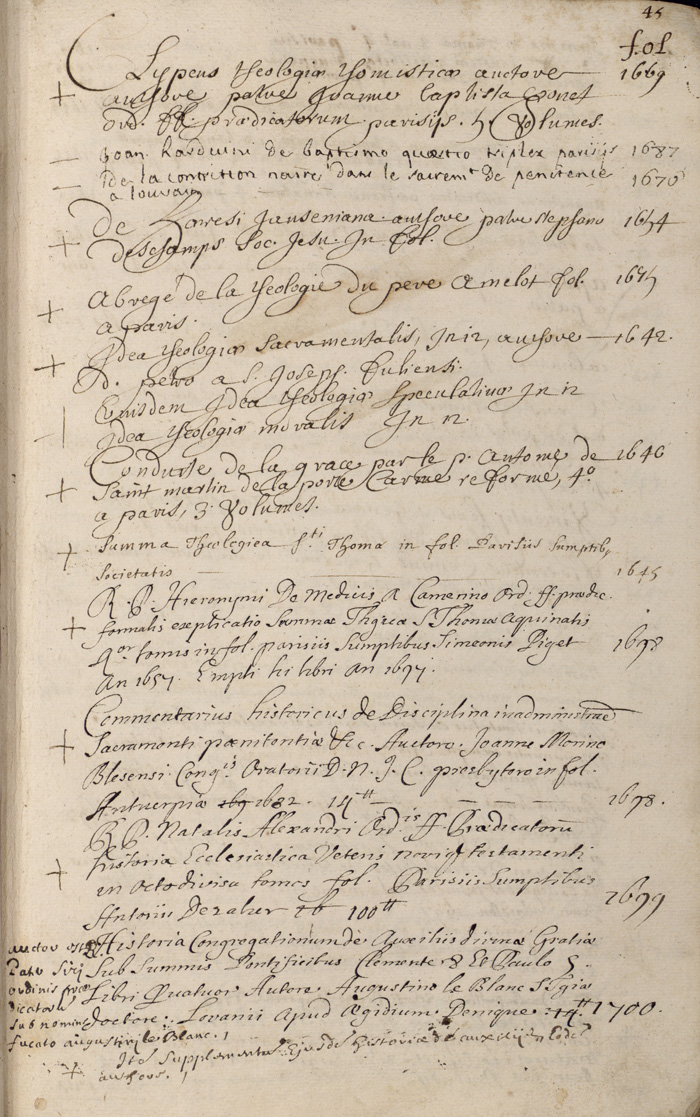 45
fol
Clypeus theologiæ thomisticæ auctore 1669
authore patre Joanne baptista Gonet
ord. ff. prædicatorum. parisijs. 5 volumes.
Joan. harduini de baptismo quæstio triplex parisijs 1687
de la contrition dans le sacremt de penitence 1676
a louvain
De hæresi Janseniana. authore patre stephano 1654
deschamps soc. Jesu. In fol.
Abregé de la theologie du pere Amelot fol. 1675
a paris.
Idea theologiæ Sacramentalis, In 12, authore 1642.
D. petro a S. Joseph. fuliensi.
Eiusdem Idea theologiæ speculativæ In 12
Idea theologiæ moralis In 12.
Conduite de la grace par le p. Antoine de 1640
Saint martin de la porte Carme reformé, 4º
a paris, 3 volumes.
Summa Theologica s.ti Thomæ in fol. Parisiis sumptib,
Societatis 1645
R. P. Hieronymi De Medicis A Camerino Ord. ff. prædic.
formalis explicatio Summæ Thgicæ S Thomæ Aquinatis
4or tomis in fol. parisiis Sumptibus Simeonis Piget 1698
An 1657. Empti hi libri An 1697.
Commentarius historicus de Disciplina in administrae
Sacramenti pœnitentiæ &c. Auctore. Joanne Morino
Blesensi Congis Oratorii D. N. J. C. presbytero in fol.
Antverpiæ 1682. 14tt 1698.
R. P. Natalis Alexandri Ordis ff Prædicatoru
historia Ecclesiastica Veteris noviq testamenti
in octo divisa tomos fol. Parisiis Sumptibus
Antonii Dezalier 100tt 1699
Historia Congregationum de Auxiliis divinæ Gratiæ
Sub Summis Pontificibus Clemente 8 Et Paulo 5.
Libri Quatuor Autore Augustino le Blanc S. Tgiæ
Doctore. Lovanii Apud Ægidium Denique 14tt 1700.
auctor est
Patr Srij
ordinis præ
dicatoru
sub nomine
fucato augustini le Blanc.
Ite Supplementu Ejusde Historiæ de auxiliis Eode
authore.